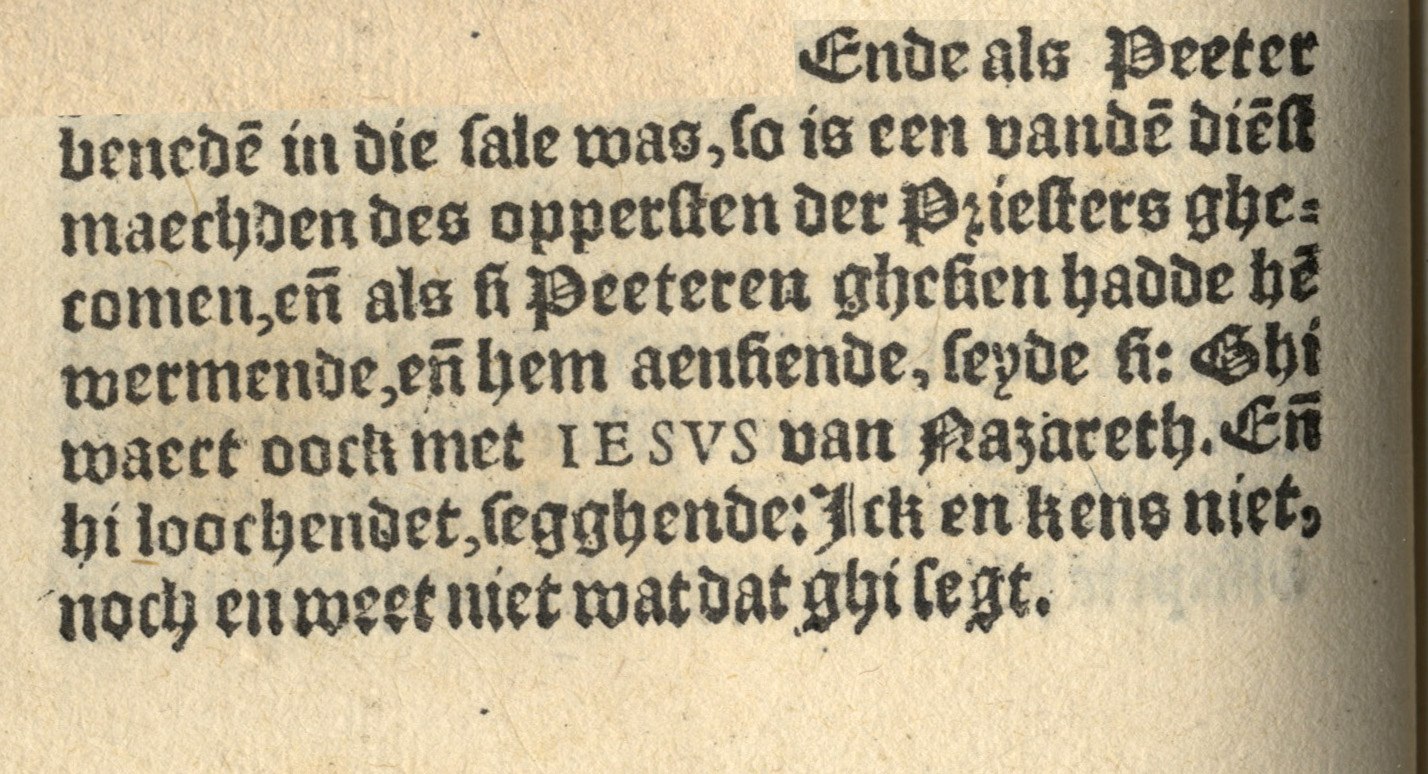 Ende als Peeter
benedē in die sale was, so is een vandē diēst
maechden des oppersten der Priesters ghe=
comen, eñ als si Peeteren ghesien hadde hē
wermende, eñ hem aensiende, seyde si: Ghi
waert oock met IESVS van Nazareth. Eñ
hi loochendet, segghende: Ick en kens niet,
noch en weet niet wat dat ghi segt.